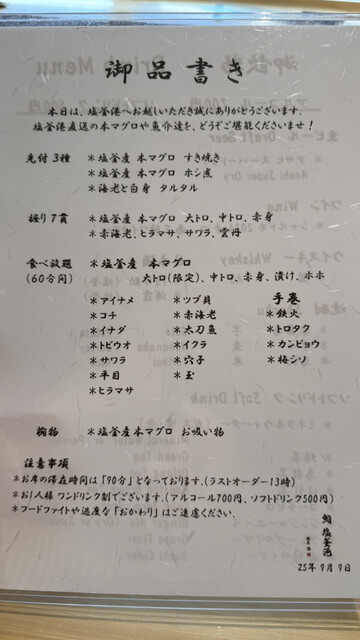 御品書き
本日は、塩釜港へお越しいただき誠にありがとうございます。
塩釜港直送の本マグロや魚介達を、どうぞご堪能くださいませ！
先付 3種 ＊塩釜産 本マグロ すき焼き
＊塩釜産 本マグロ ホシ煮
＊海老と白身 タルタル
握り 7貫 ＊塩釜産 本マグロ 大トロ、中トロ、赤身
＊赤海老、ヒラマサ、サワラ、雲丹
食べ放題 ＊塩釜産 本マグロ
(60分間) 大トロ(限定)、中トロ、赤身、漬け、ホホ
＊アイナメ ＊ツブ貝 手巻
＊コチ ＊赤海老 ＊鉄火
＊イナダ ＊太刀魚 ＊トロタク
＊トビウオ ＊イクラ ＊カンピョウ
＊サワラ ＊穴子 ＊梅シソ
＊平目 ＊玉
＊ヒラマサ
椀物 ＊塩釜産本マグロ お吸い物
注意事項
＊お席の滞在時間は「90分」となっております。(ラストオーダー13時)
＊お1人様 ワンドリンク制でございます。(アルコール700円、ソフトドリンク500円)
＊フードファイトや過度な「おかわり」はご遠慮ください。
鮨 塩釜港
25年 9月 9日